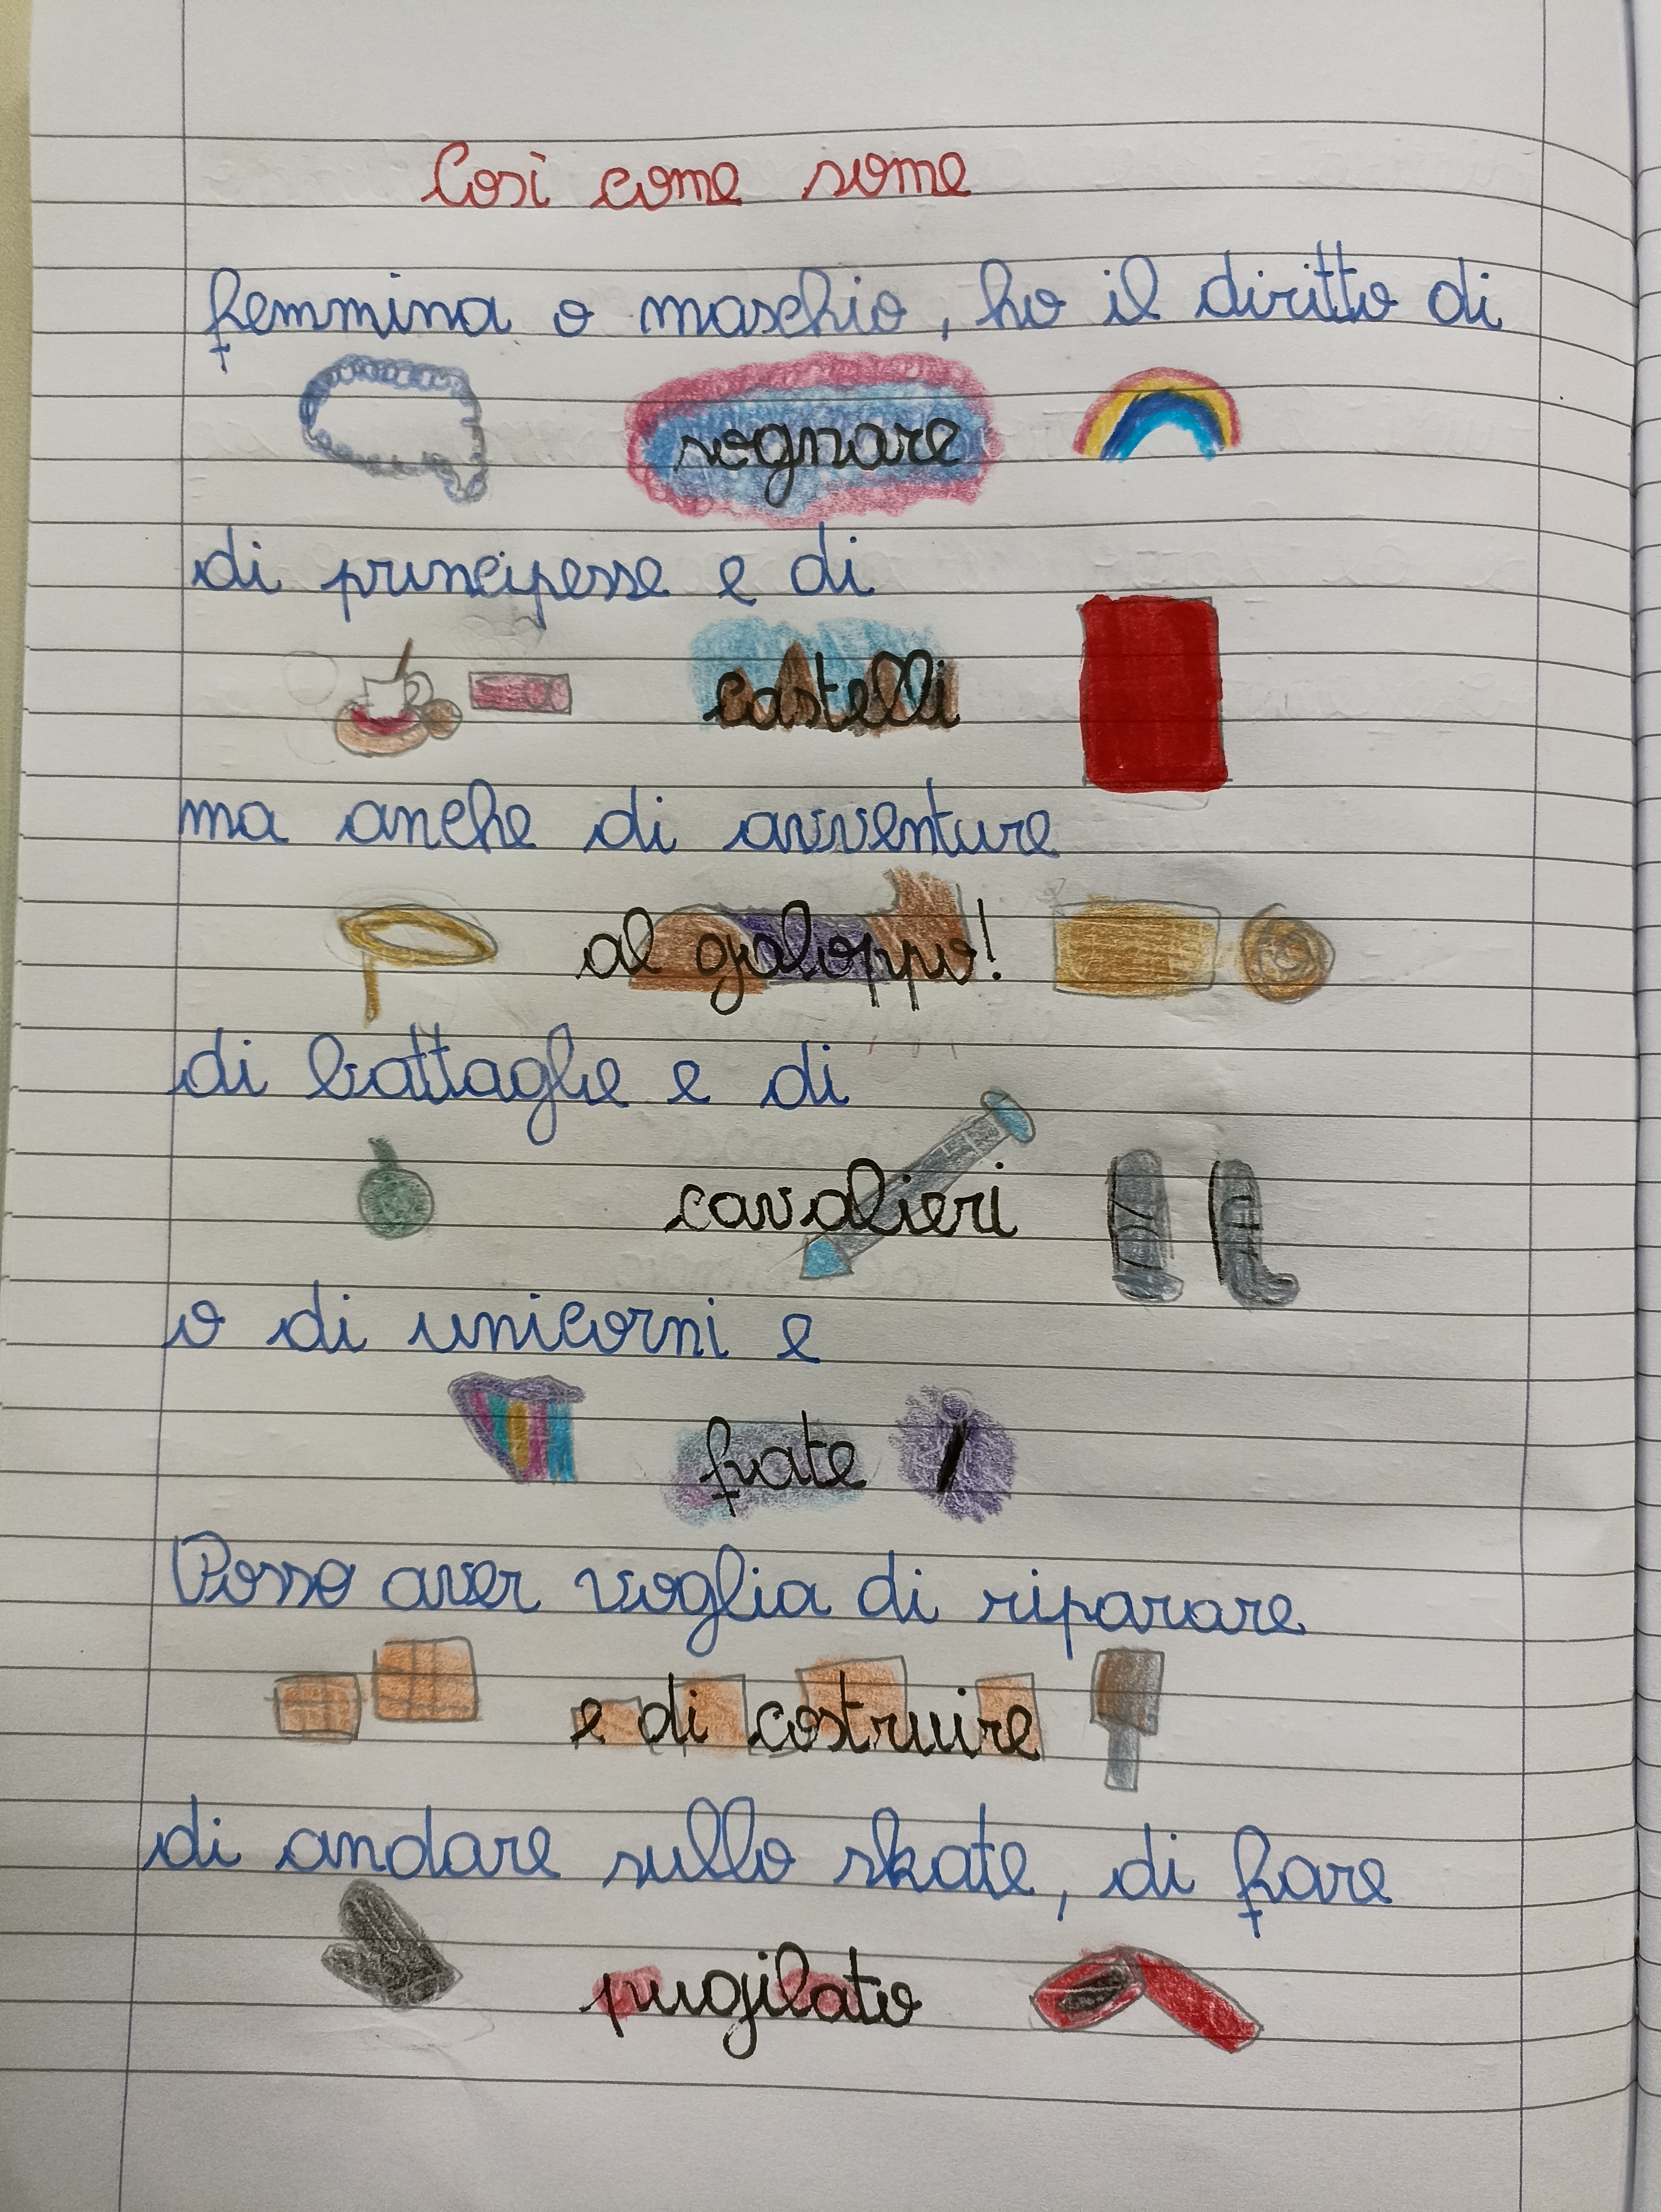 Così come some
femmina o maschio, ho il diritto di
sognare
di principesse e di
castelli
ma anche di avventure
al galoppo!
di battaglie e di
cavalieri
o di unicorni e
fate
Posso aver voglia di riparare
e di costruire
di andare sullo skate, di fare
pugilato